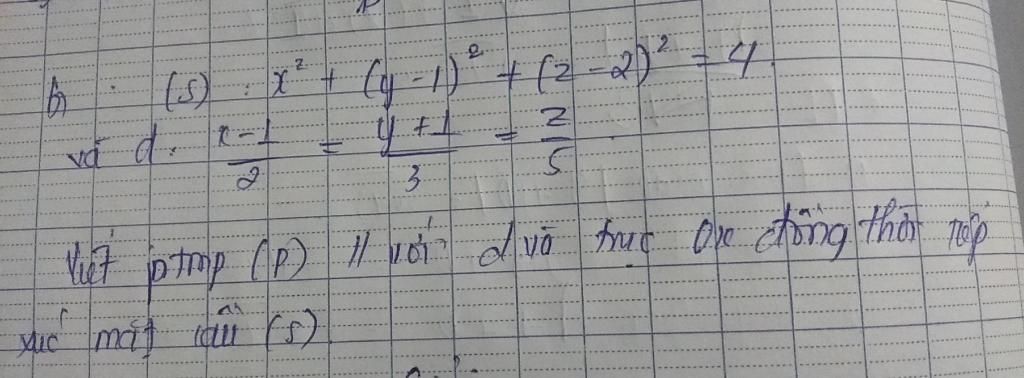 (S) : x² + (y-1)² + (z-2)² = 4
và d: (x-1)/2 = (y+1)/3 = z/5
Viết ptmp (P) // với d và trục Ox đồng thời tiếp
xúc mặt cầu (S)